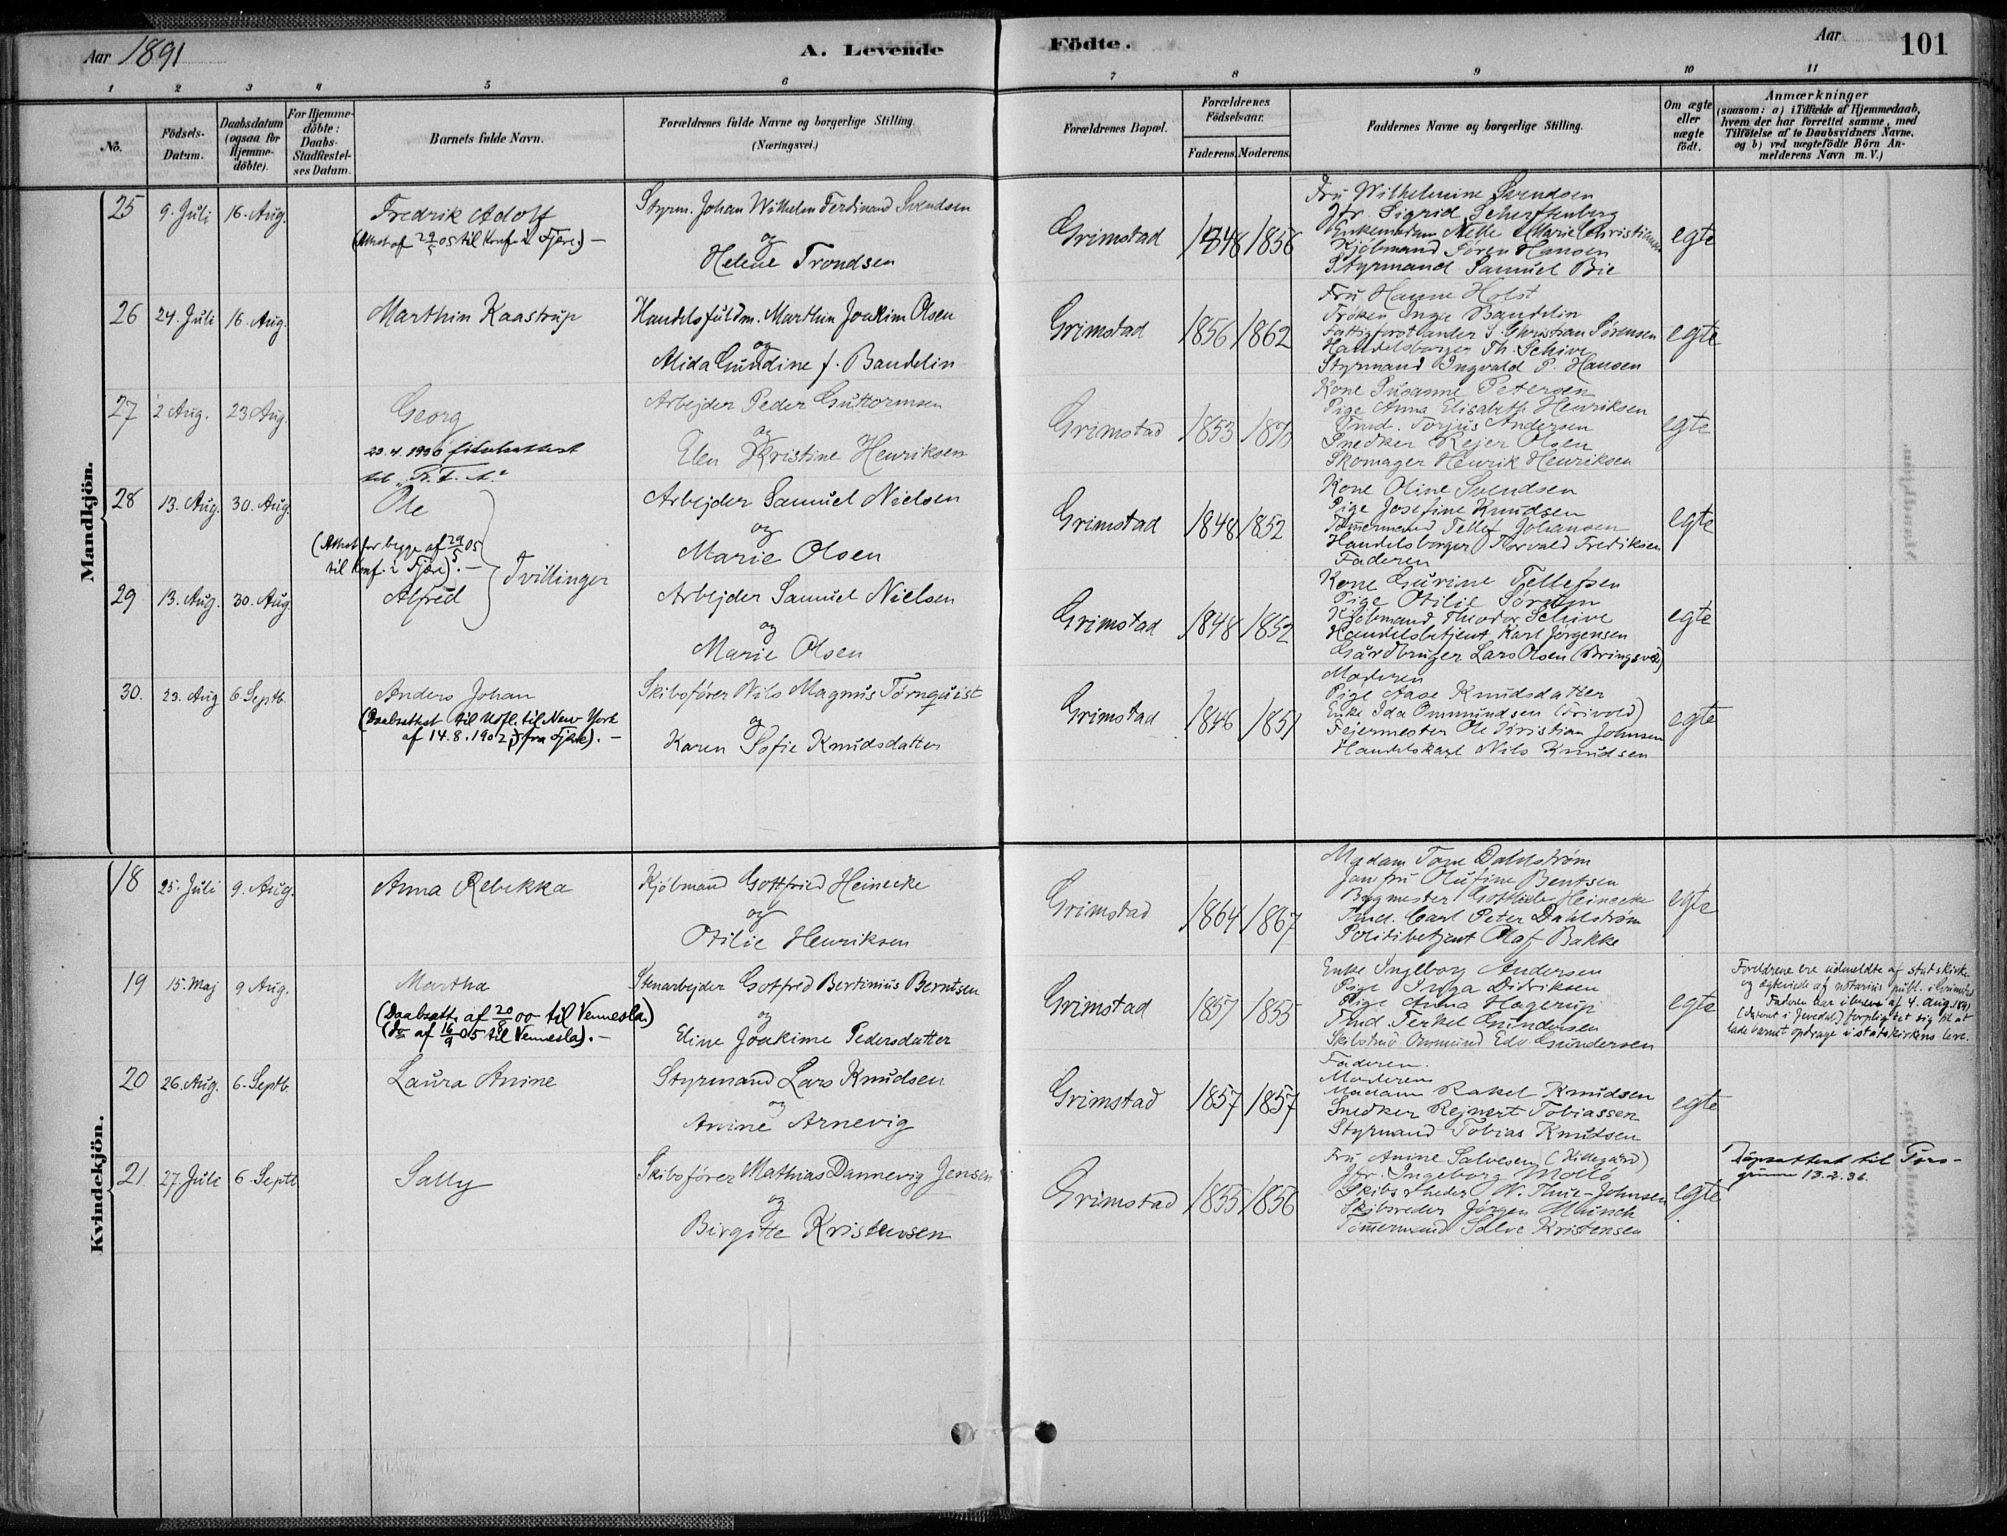 Aar 1891
A. Levende
Födte.
Aar
101
1 2 3 4 5 6 7 8 9 10 11
No.
Födsels-
Datum.
Daabsdatum
(ogsaa for
Hjemme-
döbte).
For Hjemme-
döbte:
Daabs-
Stadfæstel-
ses Datum.
Barnets fulde Navn.
Forældrenes fulde Navne og borgerlige Stilling.
(Næringsvei.)
Forældrenes Bopæl.
Forældrenes
Födselsaar.
Faderens. Moderens.
Faddernes Navne og borgerlige Stilling.
Om ægte
eller
uægte
födt.
Anmærkninger
(saasom: a) i Tilfælde af Hjemmedaab,
hvem der har forrettet samme, med
Tilföielse af to Daabsvidners Navne.
og b) ved uægtefödte Börn An-
melderens Navn m. V.)
Mandkjön.
25 9. Juli 16. Aug.
Fredrik Adolf
(Attest af 29/5 05 til Konf. i Fjære). —
Styrm. Johan Wilhelm Ferdinand Svendsen
og
Helene Trondsen
Grimstad 1848 1856
Fru Wilhelmine Svendsen
Jfr. Sigrid Scherffenberg
Enkemadam Mette Marie Christiansen
Kjöbmand Sören Hansen
Styrmand Samuel Bie
egte
26 24. Juli 16. Aug.
Marthin Kaastrup
Handelsfuldm. Marthin Joakim Olsen
og
Alida Gundine f. Bandelin
Grimstad 1856 1862
Fru Hanne Holst
Fröken Inga Bandelin
Fattigforstander S. Christian Sörensen
Handelsborger Th. Schive
Styrmand Ingvald P. Hansen
egte
27 2 Aug. 23 Aug.
Georg
til
Arbejder Peder Guttormsen
og
Elen Kristine Henriksen
Grimstad 1853 1870
Kone Susanne Petersen
Pige Anna Elisabeth Henriksen
Tmd. Torjus Andersen
Snedker Rejer Olsen
Skomager Henrik Henriksen
egte
28 13. Aug. 30. Aug.
Ole
(Attest for begge af 29/5 05
til Konf. i Fjære). —
Tvillinger
Arbejder Samuel Nielsen
og
Marie Olsen
Grimstad 1848 1852
Kone Oline Svendsen
Pige Josefine Knudsen
Tömmermand Tellef Johansen
Handelsborger Torvald Fredriksen
Faderen
egte
29 13. Aug. 30. Aug
Alfred
Arbejder Samuel Nielsen
og
Marie Olsen
Grimstad 1848 1852
Kone Gurine Tellefsen
Pige Otilie Sörensen
Kjöbmand Theodor Schive
Handelsbetjent Karl Jörgensen
Gårdbruger Lars Olsen (Bringsvær)
egte
30. 23. Aug 6 Septb.
Anders Johan
(Daabsattest til Udfl. til New York
af 14.8.1902, fra Fjære). —
Skibsförer Nils Magnus Törnquist
og
Karen Sofie Knudsdatter
Grimstad 1846 1851
Moderen
Pige Aase Knudsdatter
Enke Ida Ommundsen (Frivold)
Fejermester Ole Kristian Johnsen
Handelskarl Nils Knudsen
egte
Kvindekjön.
18 25. Juli 9. Aug.
Anna Rebekka
Kjöbmand Gottfried Heinecke
og
Otilie Henriksen
Grimstad 1864 1867
Madam Tone Dahlström
Jomfru Olufine Bentsen
Bygmester Gottlieb Heinecke
Tmd. Carl Peter Dahlström
Politibetjent Olaf Bakke
egte
19 15. Maj 9 Aug.
Martha
(Daabsatt. af 20/8 00 til Vennesla.)
(Do af 16/9 05 til Vennesla). —
Stenarbejder Gotfred Bertinius Berntsen
og
Eline Joakime Pedersdatter
Grimstad 1857 1855
Enke Ingeborg Andersen
Pige Inga Didriksen
Pige Anna Hagerup
Tmd. Terkel Gundersen
Ommund Edv Gundersen
egte
Foreldrene ere udmeldte af statskirken
og egteviede af notarius publ. i Grimstad
Faderen har i brev af 4. Aug. 1891
forpligtet sig til at
lade barnet opdrage i statskirkens lære.
20 26. Aug. 6. Septb.
Laura Anine
Styrmand Lars Knudsen
og
Anine Arnevig
Grimstad 1857 1857
Faderen.
Moderen
Madam Rakel Knudsen
Snedker Rejnert Tobiassen
Styrmand Tobias Knudsen
egte
21. 27. Juli 6. Septb
Sally
Skibsförer Mathias Dannevig Jensen
og
Birgitte Kristensen
Grimstad 1855 1856
Fru Anine Salvesen (Hillegård)
Jfr. Ingeborg Mollö
Skibsrheder N. Thue-Johnsen
Skibsreder Jörgen Munch
Tömmermand Salve Kristensen
egte
Dåpsattest til Pors-
grunn 13.2.36.